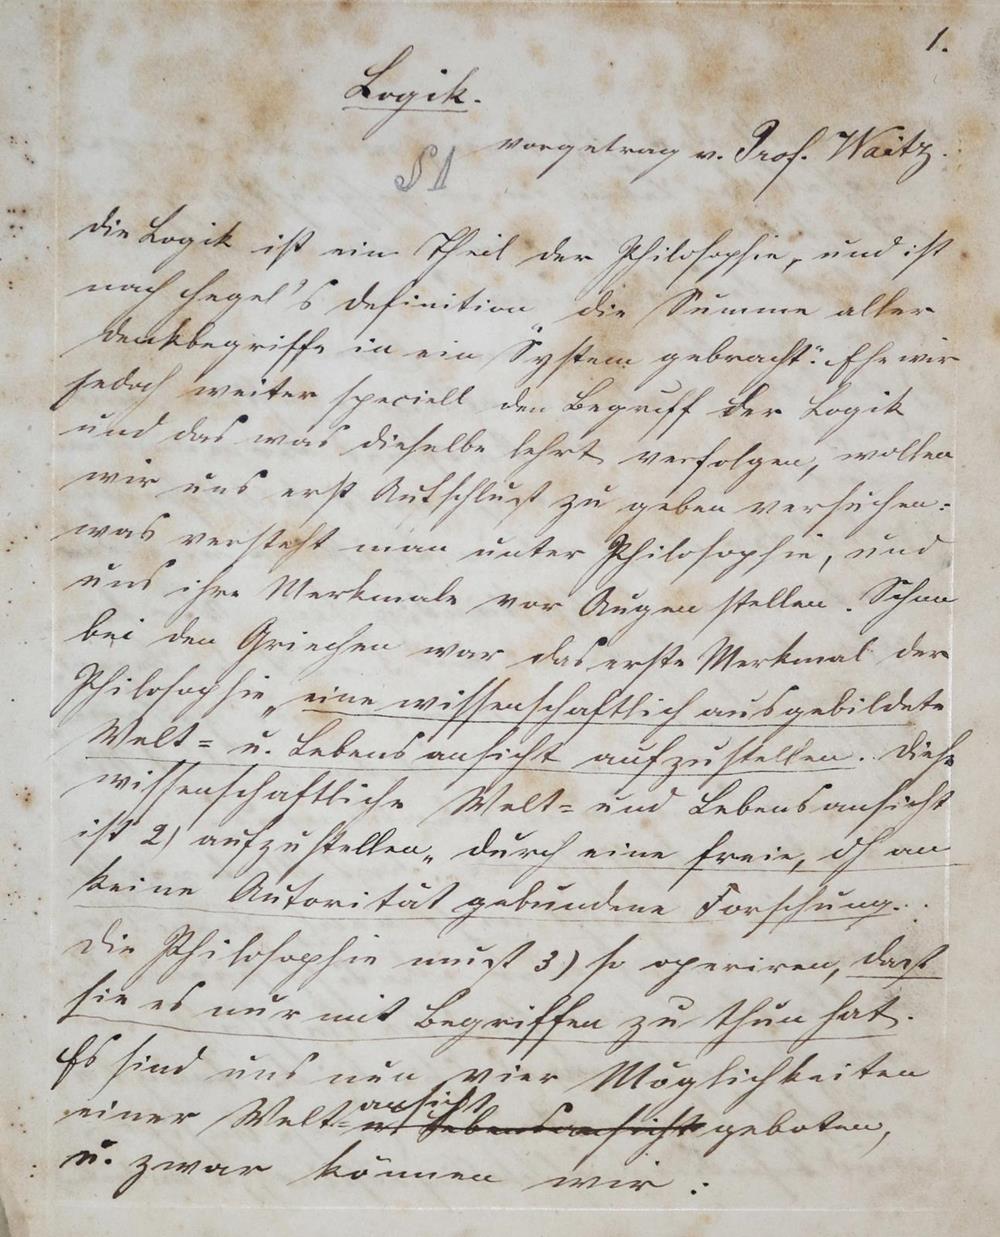 1.
Logik.
vorgetrag v. Prof. Waitz.
§ 1
Die Logik ist ein Theil der Philosophie, und ist
nach Hegel's Definition „die Summe aller
Denkbegriffe in ein System gebracht“. Ehe wir
jedoch weiter speciell den Begriff der Logik
und das was dieselbe lehrt verfolgen, wollen
wir uns erst Aufschluß zu geben versuchen:
was versteht man unter Philosophie, und
uns ihre Merkmale vor Augen stellen. Schon
bei den Griechen war das erste Merkmal der
Philosophie „eine wissenschaftlich ausgebildete
Welt= u. Lebensansicht aufzustellen. Diese
wissenschaftliche Welt= und Lebensansicht
ist 2) aufzustellen „durch eine freie, dh an
keine Autorität gebundene Forschung.
Die Philosophie muß 3) so operiren, daß
sie es nur mit Begriffen zu thun hat.
Es sind uns nun vier Möglichkeiten
einer Welt=ansicht u. Lebensansicht geboten,
u. zwar können wir: